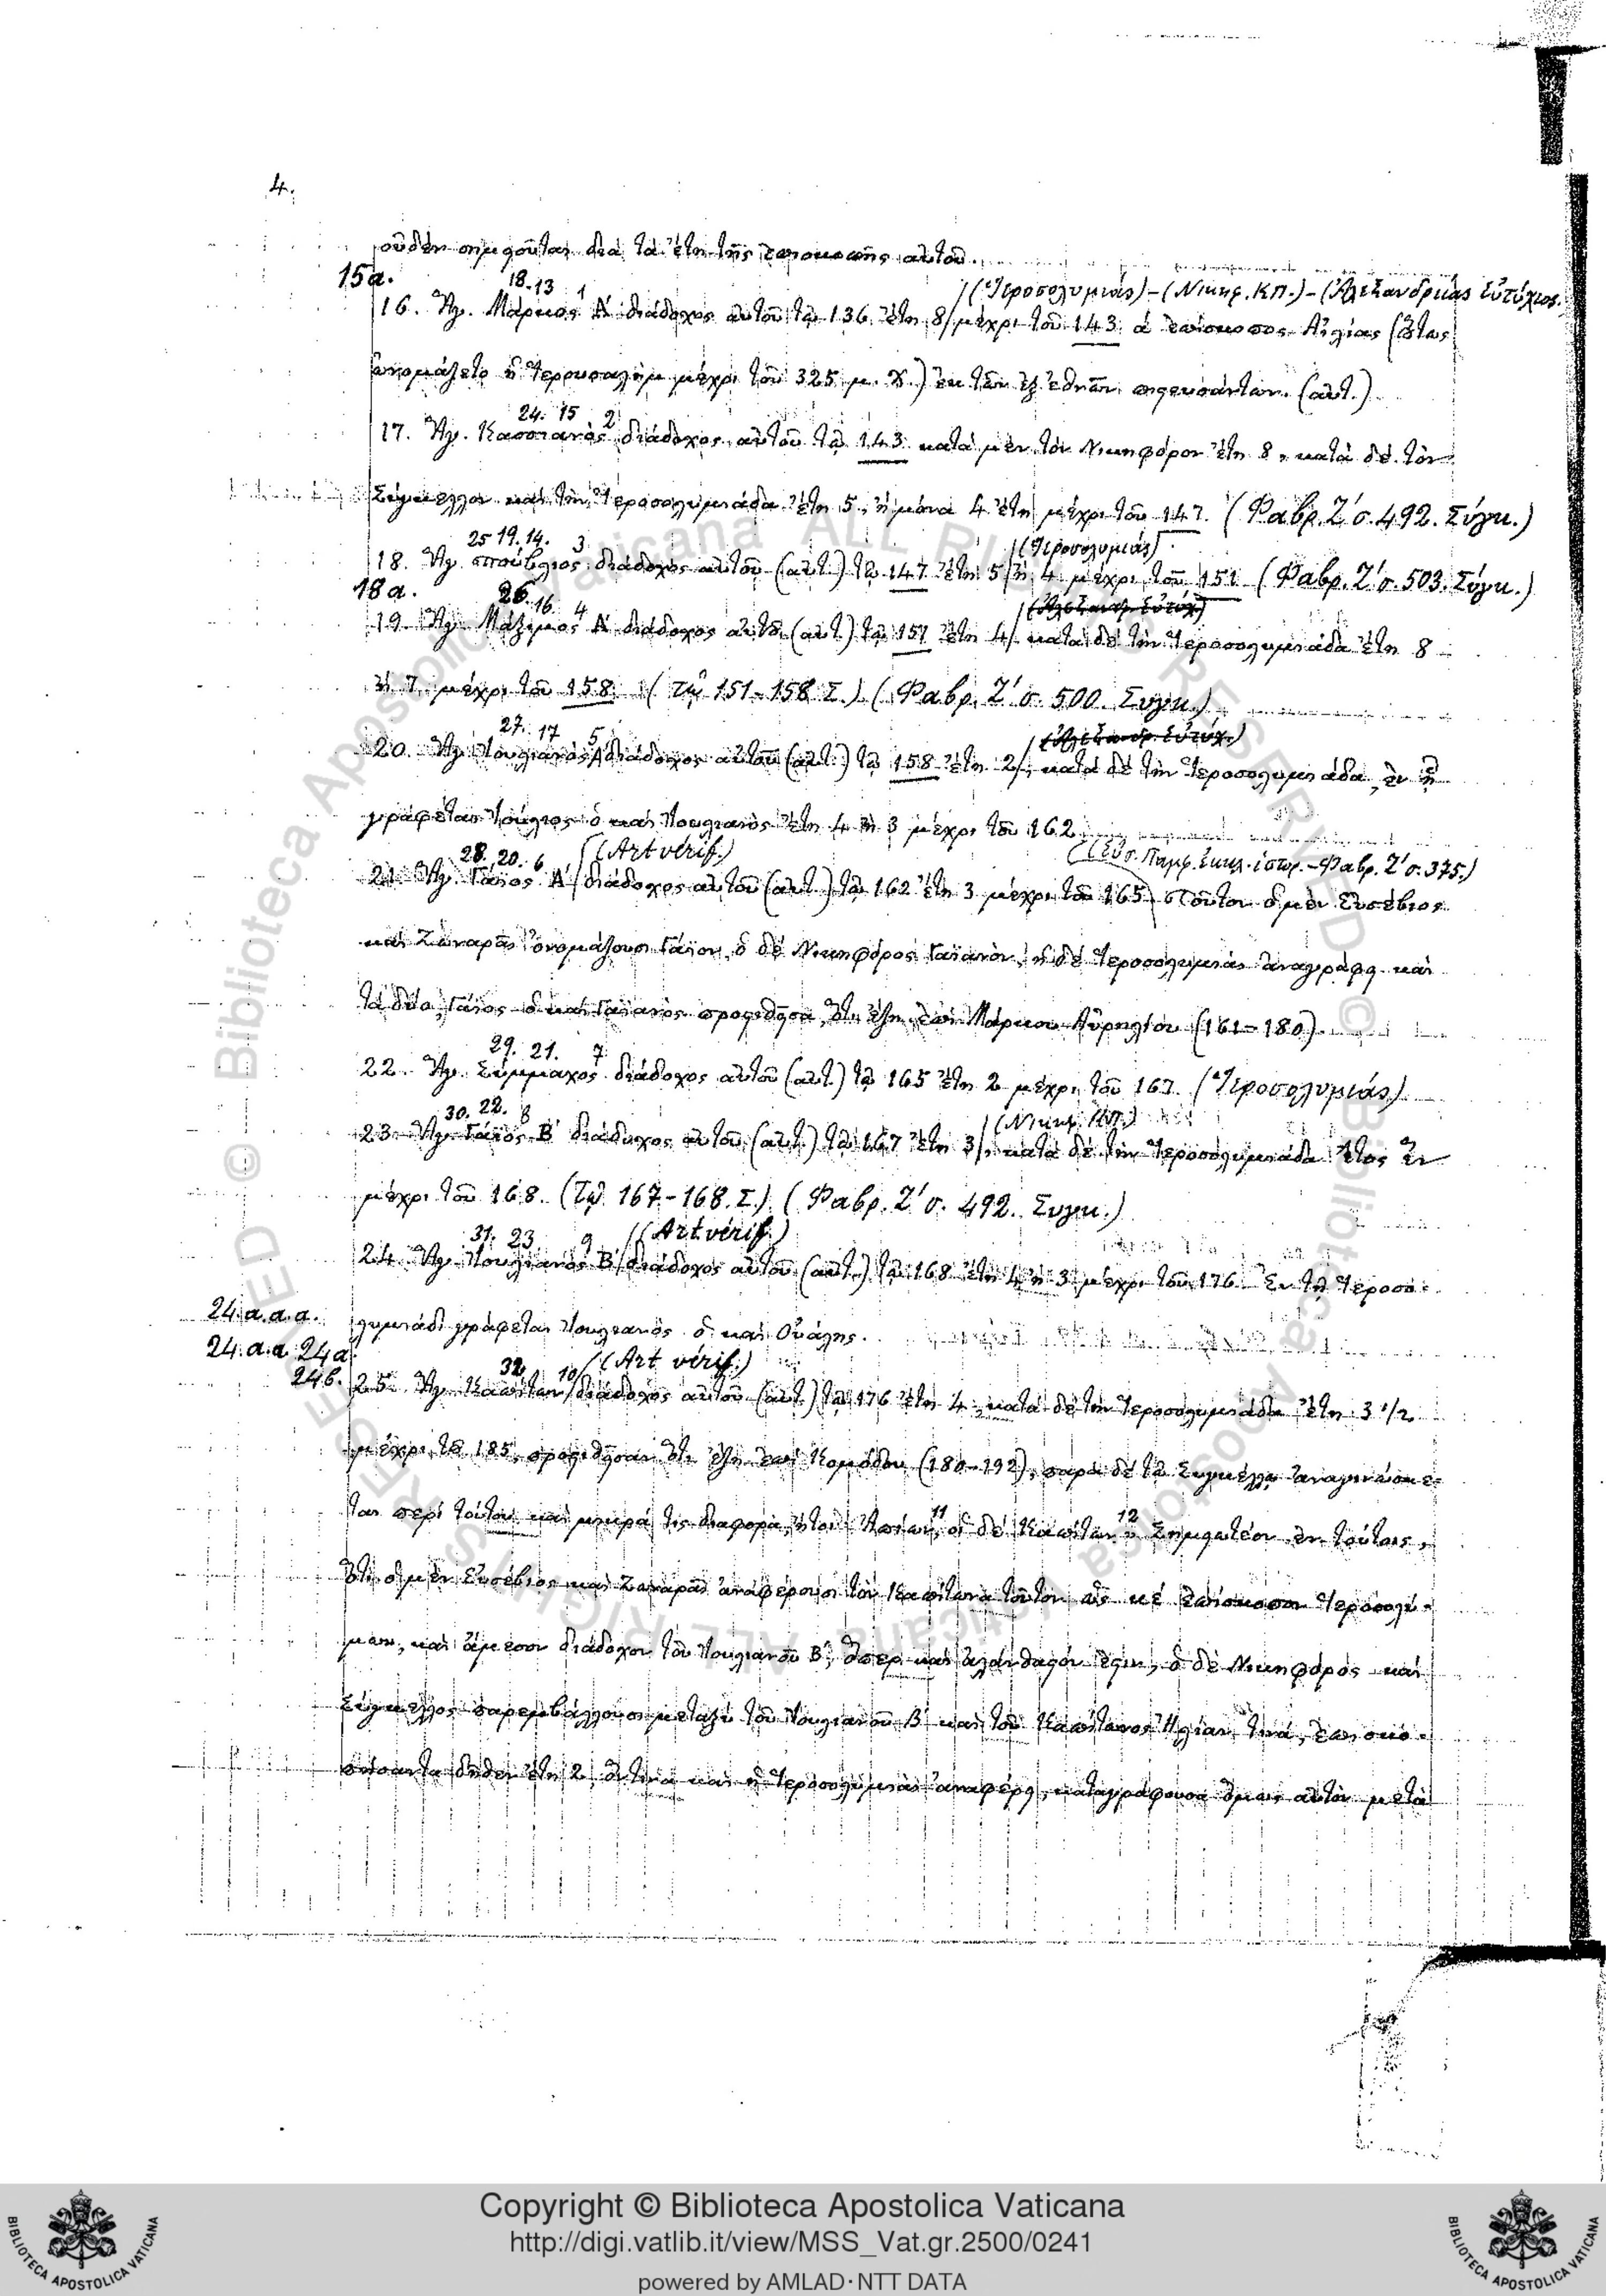 4.
οὐδὲν σημειοῦται διὰ τὰ ἔτη τῆς ἐπισκοπῆς αὐτοῦ.
15α. 18. 13 1 /(Ἱεροσολυμιάς) – (Νικηφ. ΚΠ.) – (Ἀλεξανδρείας Εὐτύχιος.
16. Ἅγ. Μάρκος Α΄ διάδοχος αὐτοῦ τῷ 136 ἔτη 8/ μέχρι τοῦ 143 ἐπίσκοπος Αἰλίας (οὕτως
ὠνομάζετο ἡ Ἱερουσαλὴμ μέχρι τοῦ 325 μ. Χ.) ἐκ τῶν ἐξ ἐθνῶν πιστευσάντων. (αὐτ.)
24. 15 2
17. Ἅγ. Κασσιανὸς διάδοχος αὐτοῦ τῷ 143 κατὰ μὲν τὸν Νικηφόρον ἔτη 8, κατὰ δὲ τὸν
Σύγκελλον καὶ τὴν Ἱεροσολυμιάδα ἔτη 5, ἢ μόνα 4 ἔτη μέχρι τοῦ 147. (Φαβρ. Ζ΄ σ. 492. Σύγκ.)
25 19. 14. 3 /(Ἱεροσολυμιάς)
18. Ἅγ. Πούβλιος διάδοχος αὐτοῦ (αὐτ.) τῷ 147 ἔτη 5/ ἢ 4 μέχρι τοῦ 151 (Φαβρ. Ζ΄ σ. 503. Σύγκ.)
18α. 26. 16 4 /(Ἀλεξανδρ. Εὐτύχ.)
19. Ἅγ. Μάξιμος Α΄ διάδοχος αὐτοῦ (αὐτ.) τῷ 151 ἔτη 4/ κατὰ δὲ τὴν Ἱεροσολυμιάδα ἔτη 8
ἢ 7 μέχρι τοῦ 158. (τῷ 151-158 Σ.) (Φαβρ. Ζ΄ σ. 500. Συγκ.)
27. 17 5 /(Ἀλεξανδρ. Εὐτύχ.)
20. Ἅγ. Ἰουλιανὸς Α διάδοχος αὐτοῦ (αὐτ.) τῷ 158 ἔτη 2/, κατὰ δὲ τὴν Ἱεροσολυμιάδα, ἐν ᾗ
γράφεται Ἰούλιος ὁ καὶ Ἰουλιανὸς ἔτη 4 ἢ 3 μέχρι τοῦ 162
28. 20. 6 /(Art vérif.) /(Εὐσ. Παμφ. ἐκκλ. ἱστορ. – Φαβρ. Ζ΄ σ. 375.)
21. Ἅγ. Γάϊος Α΄/ διάδοχος αὐτοῦ (αὐτ.) τῷ 162 ἔτη 3 μέχρι τοῦ 165. Τοῦτον ὁ μὲν Εὐσέβιος
καὶ Ζωναρᾶς ὀνομάζουσι Γάϊον, ὁ δὲ Νικηφόρος Γαϊανόν, ἡ δὲ Ἱεροσολυμιὰς ἀναγράφει καὶ
τὰ δύο, Γάϊος ὁ καὶ Γαϊανὸς προσθεῖσα, ὅτι ἔζη ἐπὶ Μάρκου Αὐρηλίου (161-180).
29. 21. 7
22. Ἅγ. Σύμμαχος διάδοχος αὐτοῦ (αὐτ.) τῷ 165 ἔτη 2 μέχρι τοῦ 167. (Ἱεροσολυμιάς)
30. 22. 8 /(Νικηφ. ΚΠ.)
23. Ἅγ. Γάϊος Β΄ διάδοχος αὐτοῦ (αὐτ.) τῷ 167 ἔτη 3/, κατὰ δὲ τὴν Ἱεροσολυμιάδα ἔτος ἓν
μέχρι τοῦ 168. (Τῷ 167-168. Σ.) (Φαβρ. Ζ΄ σ. 492. Συγκ.)
31. 23 9 /(Art vérif.)
24. Ἅγ. Ἰουλιανὸς Β΄/ διάδοχος αὐτοῦ (αὐτ.) τῷ 168 ἔτη 4 ἢ 3 μέχρι τοῦ 176. Ἐν τῇ Ἱεροσο-
24. α. α. α. λυμιάδι γράφεται Ἰουλιανὸς ὁ καὶ Οὐάλης.
24. α. α 24α 32 10 /(Art vérif.)
24β. 25. Ἅγ. Καπίτων/ διάδοχος αὐτοῦ (αὐτ.) τῷ 176 ἔτη 4, κατὰ δὲ τὴν Ἱεροσολυμιάδα ἔτη 3 1/2
μέχρι τοῦ 185, προσθεῖσαν ὅτι ἔζη ἐπὶ Κομόδου (180-192), παρὰ δὲ τῷ Συγκέλλῳ ἀναγινώσκε-
ται περὶ τούτου καὶ μικρά τις διαφορά, ἤτοι 11 ὁ δὲ Καπίτων 12 Σημειωτέον ἐν τούτοις,
ὅτι ὁ μὲν Εὐσέβιος καὶ Ζωναρᾶς ἀναφέρουσι τὸν Καπίτωνα τοῦτον ὡς κέ ἐπίσκοπον Ἱεροσολύ-
μων, καὶ ἄμεσον διάδοχον τοῦ Ἰουλιανοῦ Β΄, ὅπερ καὶ ἀλάνθαστόν ἐστιν, ὁ δὲ Νικηφόρος καὶ
Σύγκελλος παρεμβάλλουσι μεταξὺ τοῦ Ἰουλιανοῦ Β΄ καὶ τοῦ Καπίτωνος Ἠλίαν τινά, ἐπισκο-
πήσαντα δῆθεν ἔτη 2, ὅντινα καὶ ἡ Ἱεροσολυμιὰς ἀναφέρει, καταγράφουσα ὅμως αὐτὸν μετὰ
© Biblioteca Apostolica Vaticana ALL RIGHTS RESERVED
Copyright © Biblioteca Apostolica Vaticana
http://digi.vatlib.it/view/MSS_Vat.gr.2500/0241
powered by AMLAD·NTT DATA
BIBLIOTECA APOSTOLICA VATICANA
BIBLIOTECA APOSTOLICA VATICANA